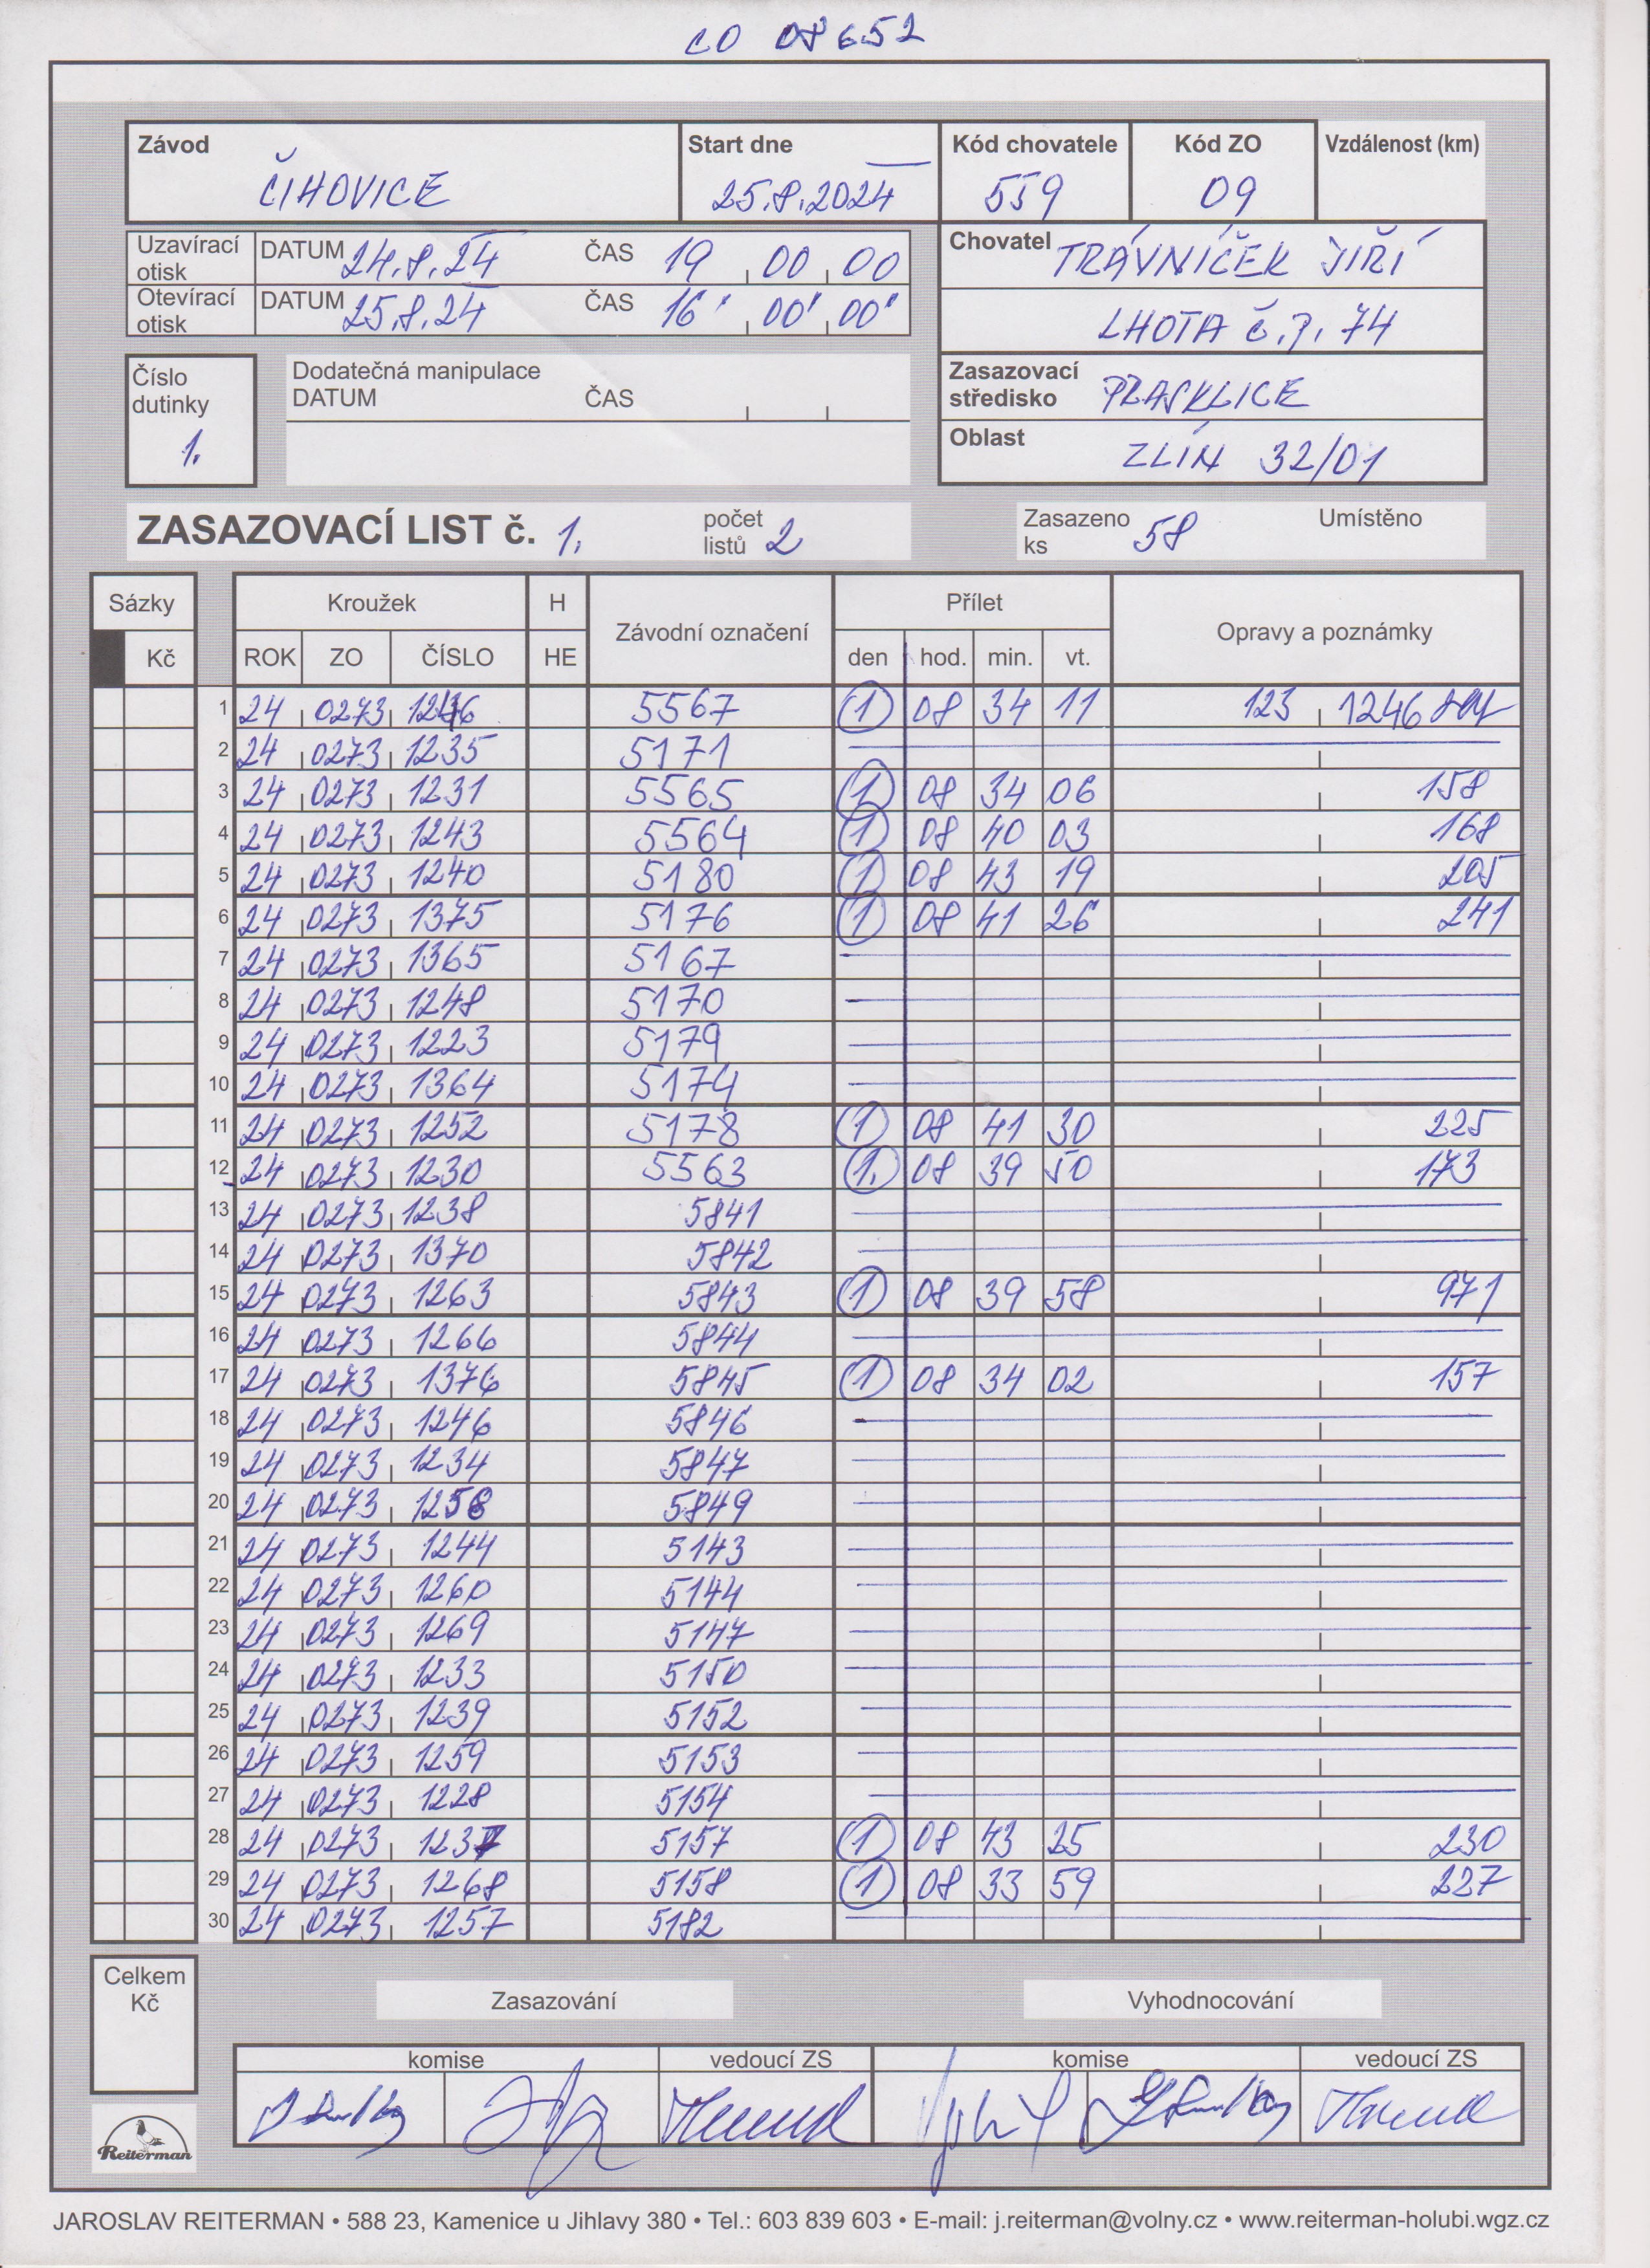 CO 08652
Závod Start dne Kód chovatele Kód ZO Vzdálenost (km)
ČIHOVICE 25.8.2024 559 09
Uzavírací otisk DATUM 24.8.24 ČAS 19 00 00
Otevírací otisk DATUM 25.8.24 ČAS 16' 00' 00"
Chovatel TRÁVNÍČEK JIŘÍ
LHOTA č.p. 74
Zasazovací středisko PRASKLICE
Oblast ZLÍN 32/01
Číslo dutinky 1.
Dodatečná manipulace
DATUM ČAS
ZASAZOVACÍ LIST č. 1. počet listů 2 Zasazeno ks 58 Umístěno
Sázky Kroužek H Závodní označení Přílet Opravy a poznámky
Kč ROK ZO ČÍSLO HE den hod. min. vt.
1 24 0273 1246 5567 1 08 34 11 123 1246
2 24 0273 1235 5171
3 24 0273 1231 5565 1 08 34 06 158
4 24 0273 1243 5564 1 08 40 03 168
5 24 0273 1240 5180 1 08 43 19 205
6 24 0273 1375 5176 1 08 41 26 241
7 24 0273 1365 5167
8 24 0273 1248 5170
9 24 0273 1223 5179
10 24 0273 1364 5174
11 24 0273 1252 5178 1 08 41 30 225
12 24 0273 1230 5563 1. 08 39 50 173
13 24 0273 1238 5841
14 24 0273 1370 5842
15 24 0273 1263 5843 1 08 39 58 971
16 24 0273 1266 5844
17 24 0273 1376 5845 1 08 34 02 157
18 24 0273 1246 5846
19 24 0273 1234 5847
20 24 0273 1258 5849
21 24 0273 1244 5143
22 24 0273 1260 5144
23 24 0273 1269 5147
24 24 0273 1233 5150
25 24 0273 1239 5152
26 24 0273 1259 5153
27 24 0273 1228 5154
28 24 0273 1237 5157 1 08 43 25 230
29 24 0273 1268 5158 1 08 33 59 227
30 24 0273 1257 5182
Celkem Kč Zasazování Vyhodnocování
komise vedoucí ZS komise vedoucí ZS
Reiterman
JAROSLAV REITERMAN • 588 23, Kamenice u Jihlavy 380 • Tel.: 603 839 603 • E-mail: j.reiterman@volny.cz • www.reiterman-holubi.wgz.cz